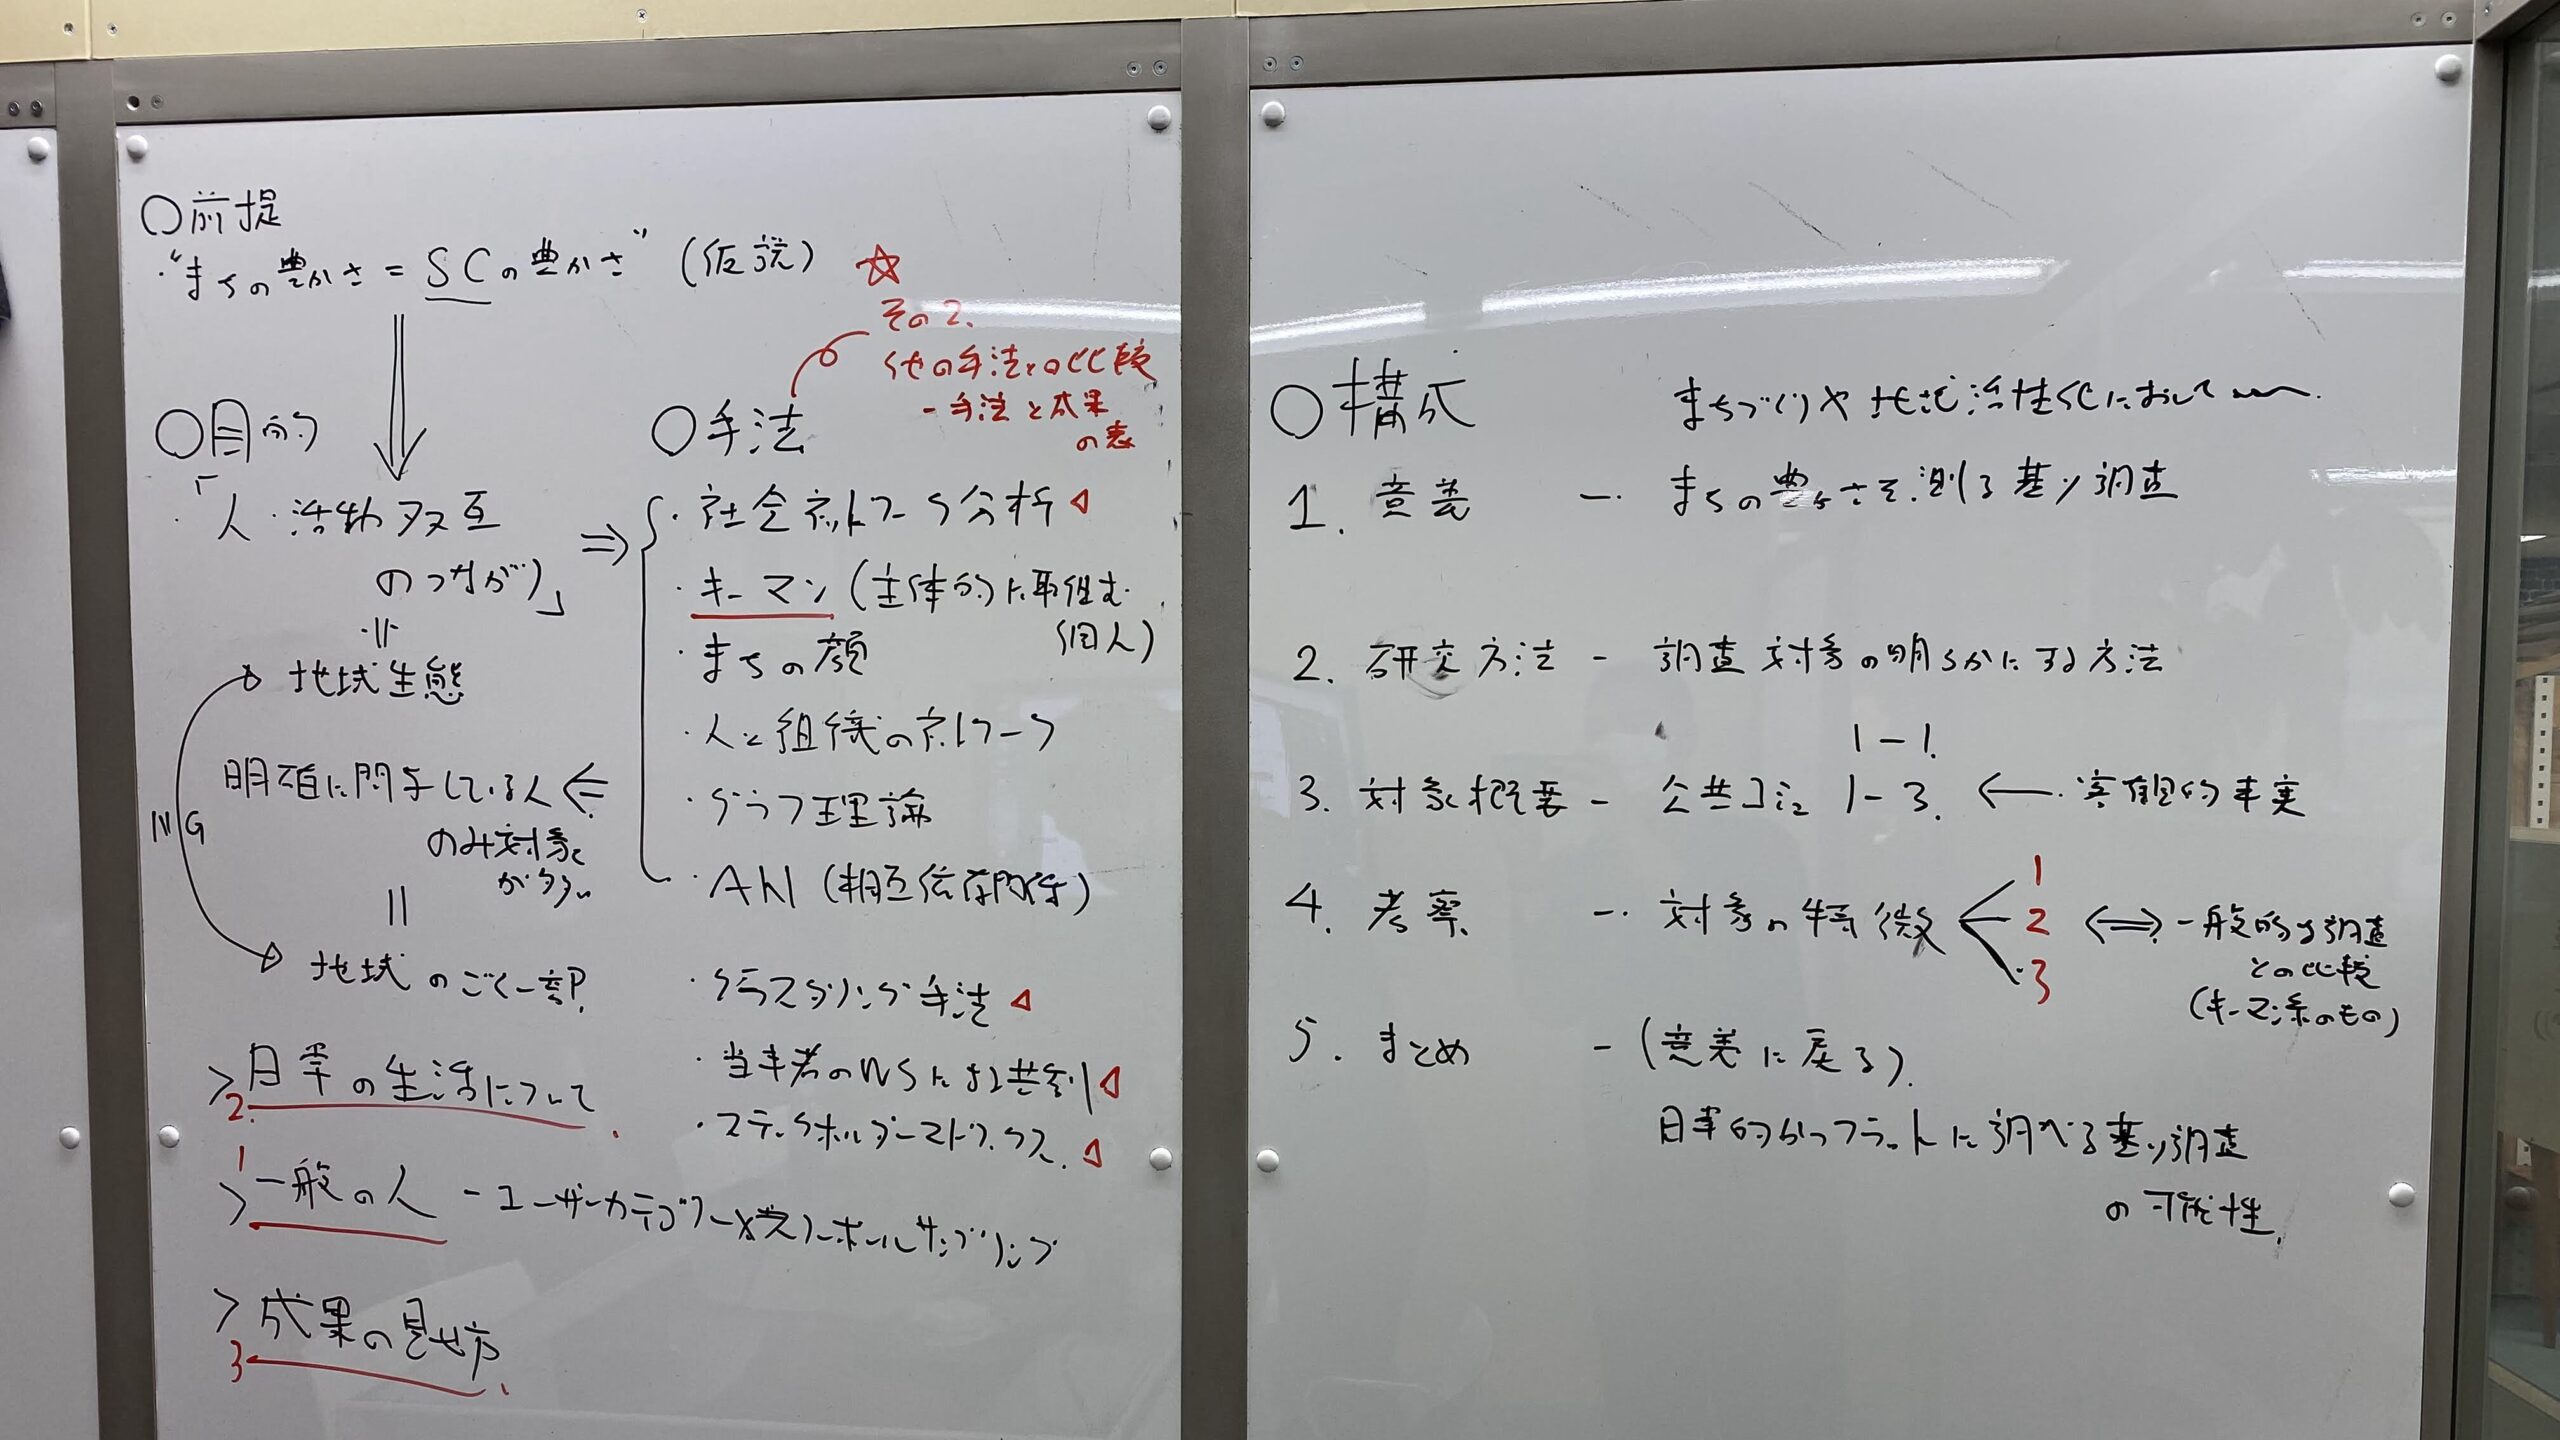 ○前提
・"まちの豊かさ = SCの豊かさ" (仮説)
☆
その2.
他の手法との比較
- 手法と成果
の表
○目的
・「人・活動 双互
のつながり」
=
地域生態
明確に関与している人 ⇐
のみ対象
が多い
GAP
=
地域のごく一部
> 日常の生活について
2.
1
> 一般の人 - ユーザーカテゴリー×スノーボールサンプリング
> 成果の見せ方
3
○手法
⇒ { ・社会ネットワーク分析 ◁
・キーマン (主体的に取組む
個人)
・まちの顔
・人と組織のネットワーク
・グラフ理論
・(相互依存関係)
・クラスタリング手法 ◁
・当事者のWSによる共創 ◁
・ステークホルダーマトリクス. ◁
○構成
まちづくりや地域活性化において 〜.
1. 意義 - まちの豊かさを測る基ソ調査
2. 研究方法 - 調査対象の明らかにする方法
1-1.
3. 対象概要 - 公共 1-3. ← 客観的事実
4. 考察 - 対象の特徴 < 1 2 3 ⇔ 一般的な調査
との比較
(キーマン系のもの)
5. まとめ - (意義に戻る).
日常的かつフラットに調べる基ソ調査
の可能性.